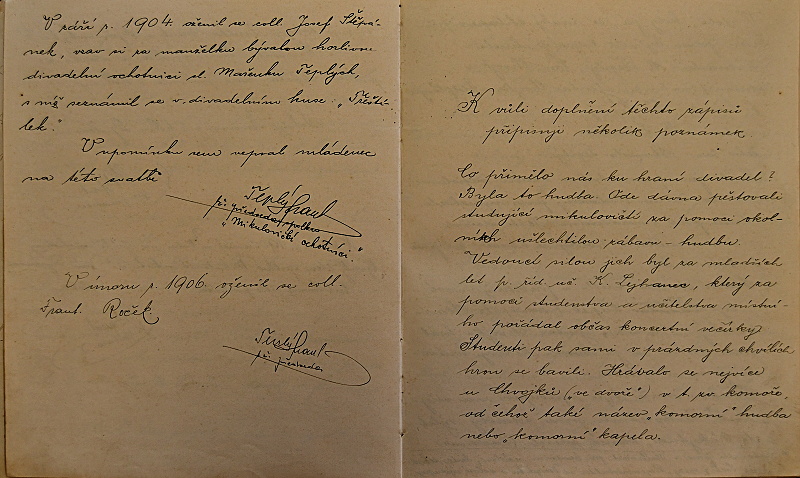 V září r. 1904. oženil se coll. Josef Štěpá-
nek, vzav si za manželku bývalou horlivou
divadelní ochotnici sl. Mařenku Teplých,
s níž seznámil se v divadelním kuse: „
lek."
V upomínku sem vepsal mládenec
na této svatbě
Teplý Frant
př. předseda spolku
„Mikulovičtí ochotníci."
V únoru r. 1906. oženil se coll.
Frant. Roček
Teplý Frant
př. předseda
K vůli doplnění těchto zápisů
připisuji několik poznámek.
Co přimělo nás ku hraní divadel?
Byla to hudba. Ode dávna pěstovali
studující mikulovičtí za pomoci okol-
ních ušlechtilou zábavu – hudbu.
Vedoucí silou jich byl za mladších
let p. říd. uč. K. Lejhanec, který za
pomoci studenstva a učitelstva místní-
ho pořádal občas koncertní večírky.
Studenti pak sami v prázdných chvílích
hrou se bavili. Hrávalo se nejvíce
u Chvojků („ve dvoře") v t. zv. komoře,
od čehož také název „komorní" hudba
nebo „komorní" kapela.